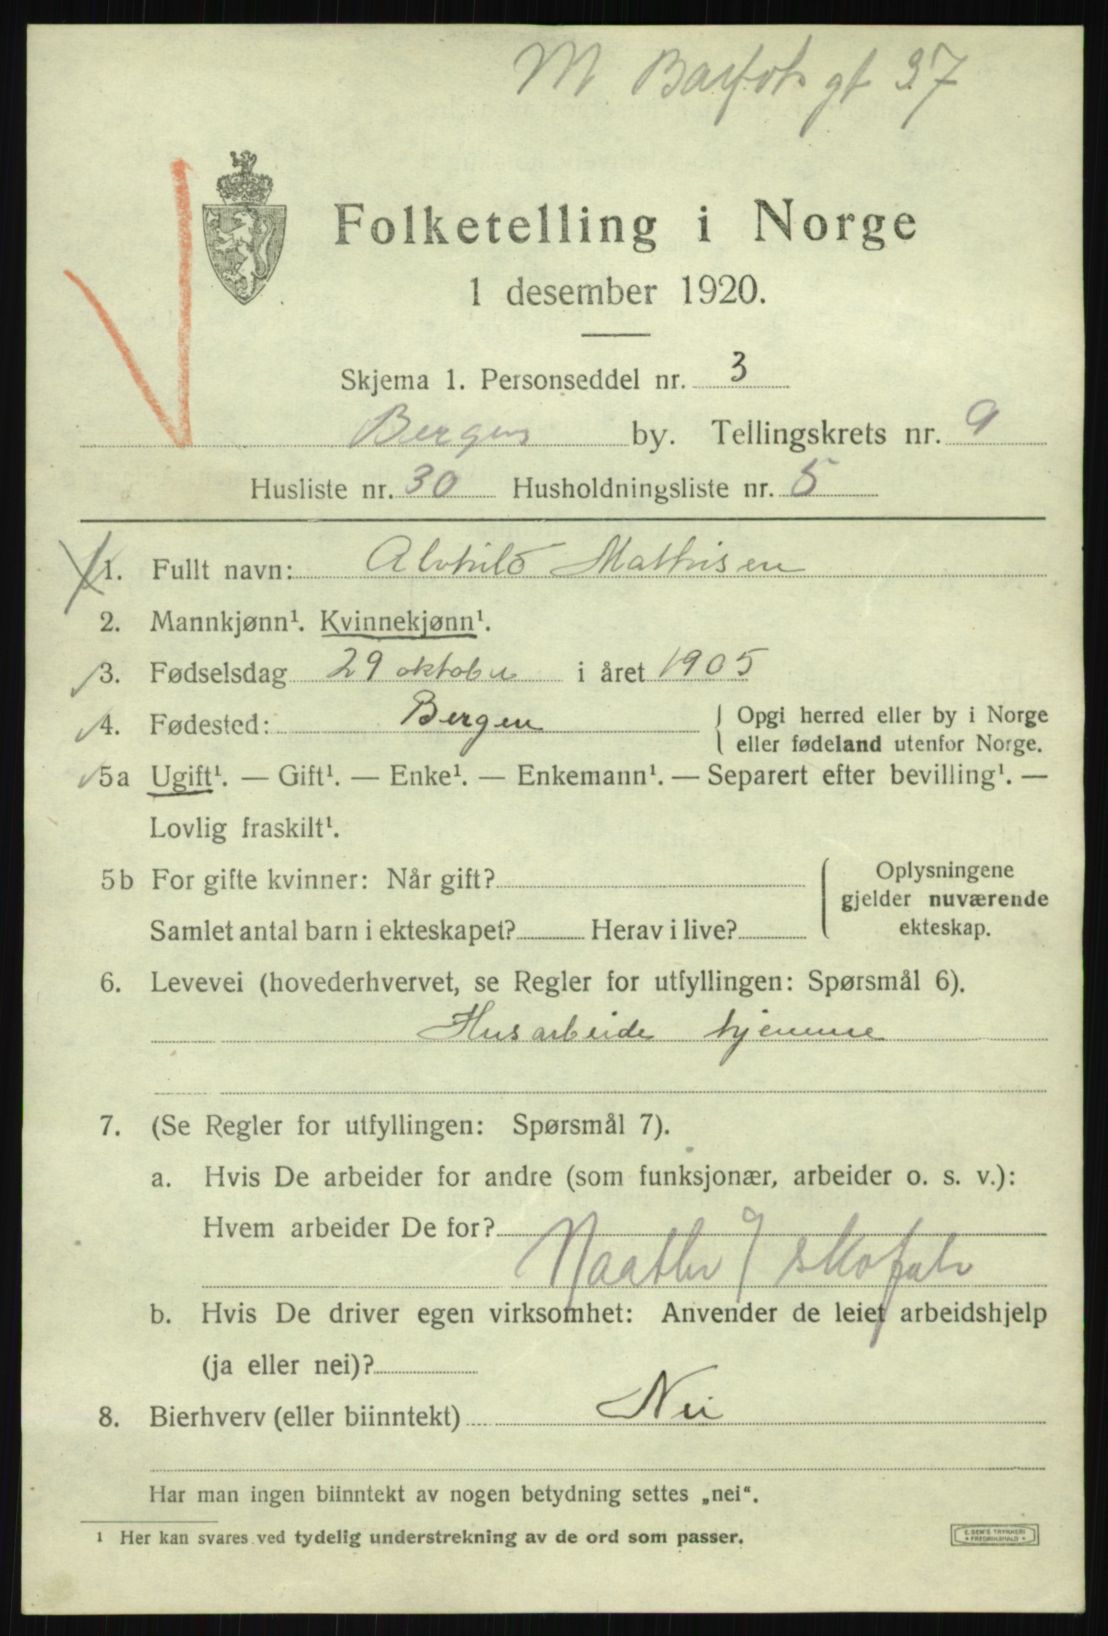 M Barfots gt 37
Folketelling i Norge
1 desember 1920.
Skjema 1. Personseddel nr. 3
Bergens by. Tellingskrets nr. 9
Husliste nr. 30 Husholdningsliste nr. 5
1. Fullt navn: Alvhild Mathisen
2. Mannkjønn¹. Kvinnekjønn¹.
3. Fødselsdag 29 oktober i året 1905
4. Fødested: Bergen
Opgi herred eller by i Norge
eller fødeland utenfor Norge.
5a Ugift¹. — Gift¹. — Enke¹. — Enkemann¹. — Separert efter bevilling¹. —
Lovlig fraskilt¹.
5b For gifte kvinner: Når gift?
Samlet antal barn i ekteskapet? Herav i live?
Oplysningene
gjelder nuværende
ekteskap.
6. Levevei (hovederhvervet, se Regler for utfyllingen: Spørsmål 6).
Husarbeide hjemme
7. (Se Regler for utfyllingen: Spørsmål 7).
a. Hvis De arbeider for andre (som funksjonær, arbeider o. s. v.):
Hvem arbeider De for?
skofabr
b. Hvis De driver egen virksomhet: Anvender de leiet arbeidshjelp
(ja eller nei)?
8. Bierhverv (eller biinntekt) Nei
Har man ingen biinntekt av nogen betydning settes „nei“.
¹ Her kan svares ved tydelig understrekning av de ord som passer.
E. SEM'S TRYKKERI
FREDRIKSHALD